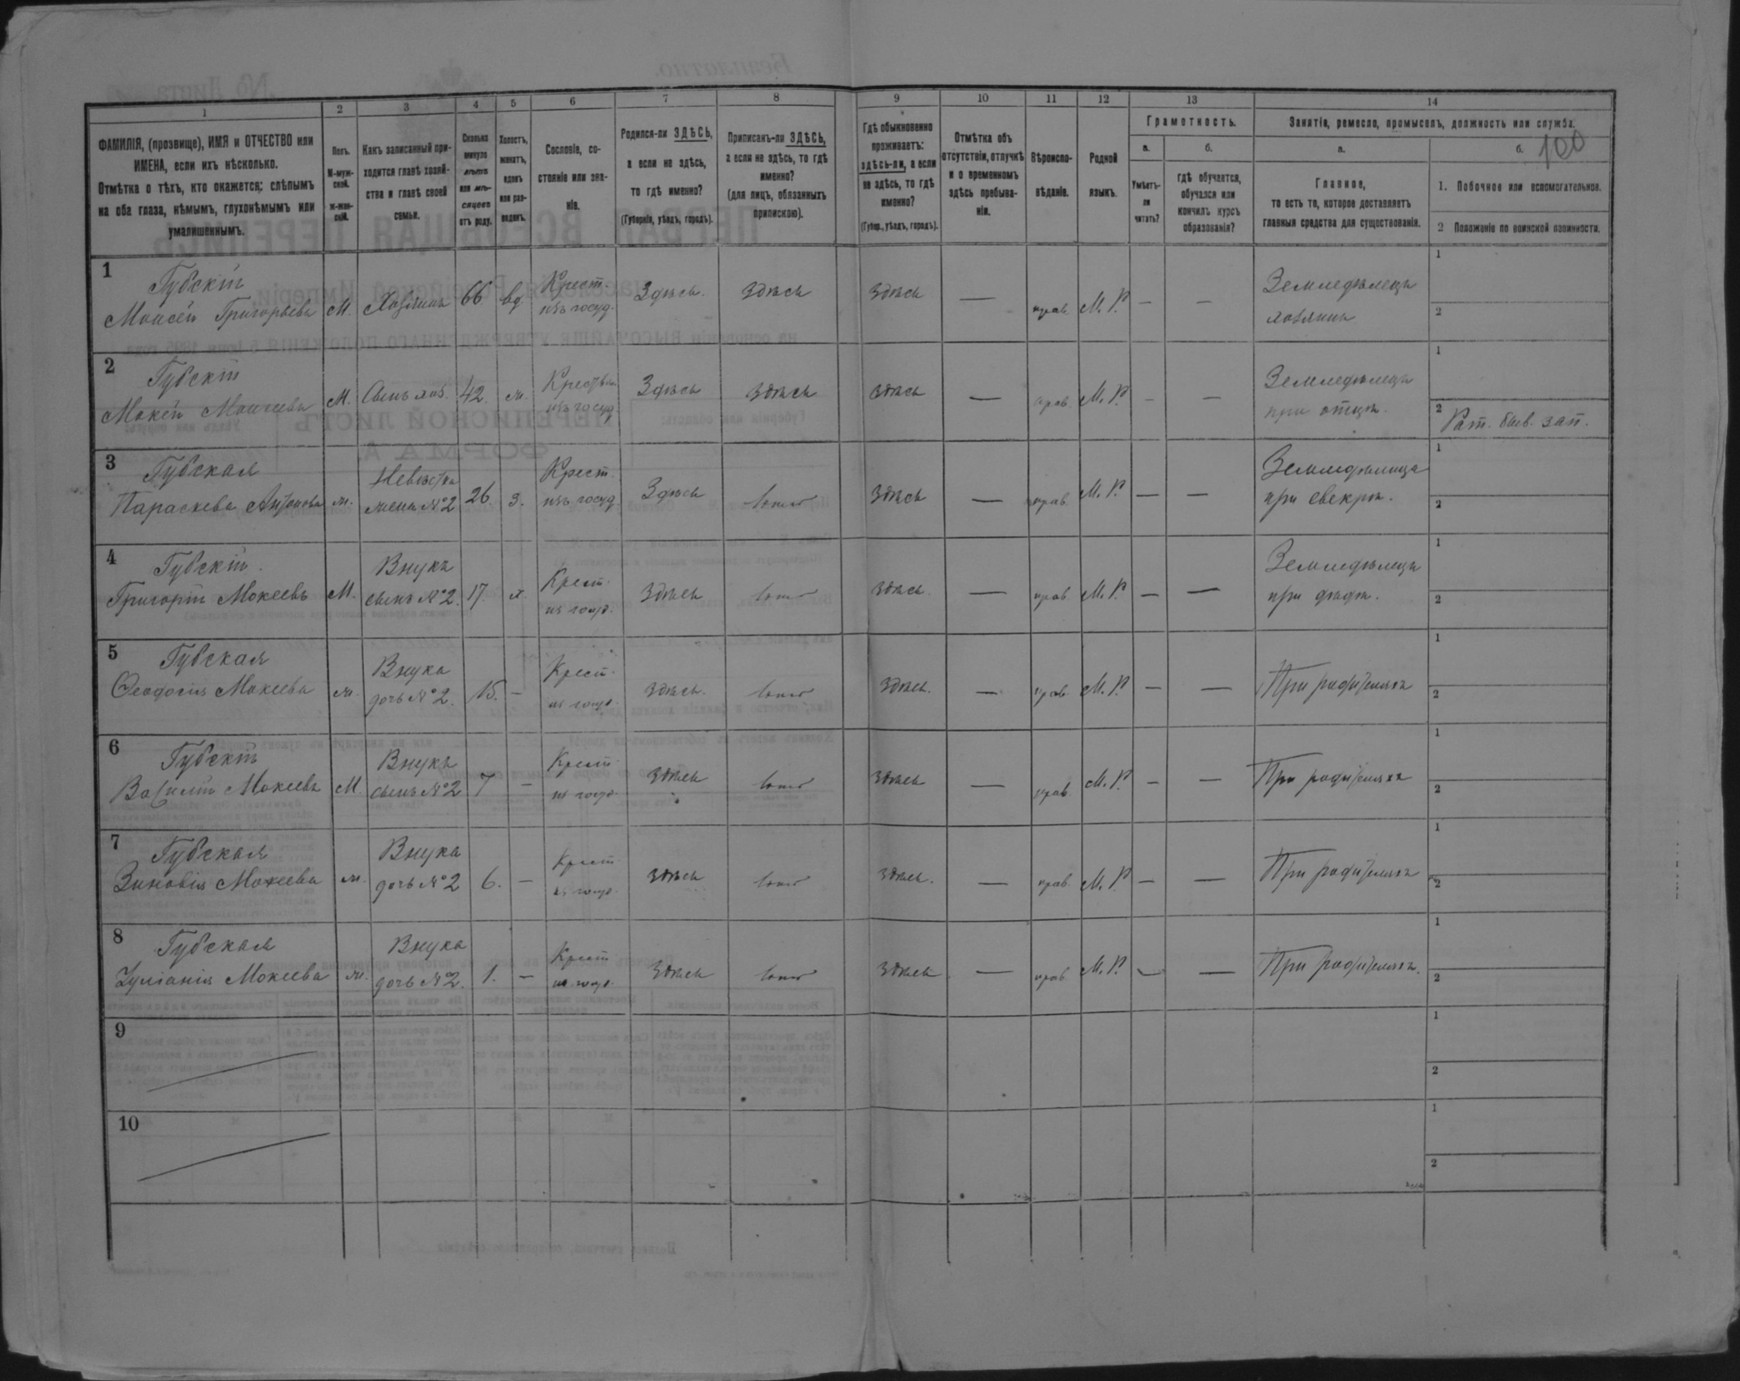 100
1 2 3 4 5 6 7 8 9 10 11 12 13 14
ФАМИЛІЯ, (прозвище), ИМЯ и ОТЧЕСТВО или
ИМЕНА, если ихъ нѣсколько.
Отмѣтка о тѣхъ, кто окажется: слѣпымъ
на оба глаза, нѣмымъ, глухонѣмымъ или
умалишеннымъ.
Полъ.
М-муж-
ской.
Ж-жен-
скій.
Какъ записанный при-
ходится главѣ хозяй-
ства и главѣ своей
семьи.
Сколько
минуло
лѣтъ
или мѣ-
сяцевъ
отъ роду.
Холостъ,
женатъ,
вдовъ
или раз-
веденъ.
Сословіе, со-
стояніе или зва-
ніе.
Родился-ли ЗДѢСЬ,
а если не здѣсь,
то гдѣ именно?
(Губернія, уѣздъ, городъ).
Приписанъ-ли ЗДѢСЬ,
а если не здѣсь, то гдѣ
именно?
(для лицъ, обязанныхъ
припискою).
Гдѣ обыкновенно
проживаетъ:
здѣсь-ли, а если
не здѣсь, то гдѣ
именно?
(Губер., уѣздъ, городъ).
Отмѣтка объ
отсутствіи, отлучкѣ
и о временномъ
здѣсь пребыва-
ніи.
Вѣроиспо-
вѣданіе.
Родной
языкъ.
Грамотность.
а. б.
Умѣетъ-
ли
читать?
гдѣ обучается,
обучался или
кончилъ курсъ
образованія?
Занятіе, ремесло, промыселъ, должность или служба.
а. б.
Главное,
то есть то, которое доставляетъ
главныя средства для существованія.
1. Побочное или вспомогательное.
2 Положеніе по воинской повинности.
1
Губскій
Моисей Григорьевъ М. Хозяинъ 66 вд Крест. изъ госуд. Здѣсь. Здѣсь Здѣсь — прав. М. Р. — — Земледѣлецъ хозяинъ
1
2
2
Губскій
Мокей Моисеевъ М. Сынъ хоз. 42. ж. Крестьян. изъ госуд. Здѣсь Здѣсь Здѣсь — прав. М. Р. — — Земледѣлецъ при отцѣ.
1
2 Рат. бывъ. зап.
3
Губская
Параскева Антонова ж. Невѣстка жена №2 26. з. Крест. изъ госуд. Здѣсь Здѣсь — прав. М. Р. — — Земледѣлица при свекрѣ.
1
2
4
Губскій.
Григорій Мокеевъ М. Внукъ сынъ №2. 17. х. Крест. из госуд. Здѣсь Здѣсь. — прав. М. Р. — — Земледѣлецъ при дѣдѣ.
1
2
5
Губская
Ѳеодосія Мокеева ж. Внука дочь №2. 15. — Крест. из госуд. Здѣсь. Здѣсь. — прав. М. Р. — — При родителяхъ
1
2
6
Губскій
Василій Мокеевъ М. Внукъ сынъ №2 7 — Крест. из госуд. Здѣсь Здѣсь — прав. М. Р. — — При родителяхъ
1
2
7
Губская
Зиновія Мокеева ж. Внука дочь №2 6. — Крест. из госуд. Здѣсь Здѣсь. — прав. М. Р. — — При родителяхъ
1
2
8
Губская
Іуліанія Мокеева ж. Внука дочь №2. 1. — Крест. из госуд. Здѣсь Здѣсь — прав. М. Р. — — При родителяхъ.
1
2
9
1
2
10
1
2